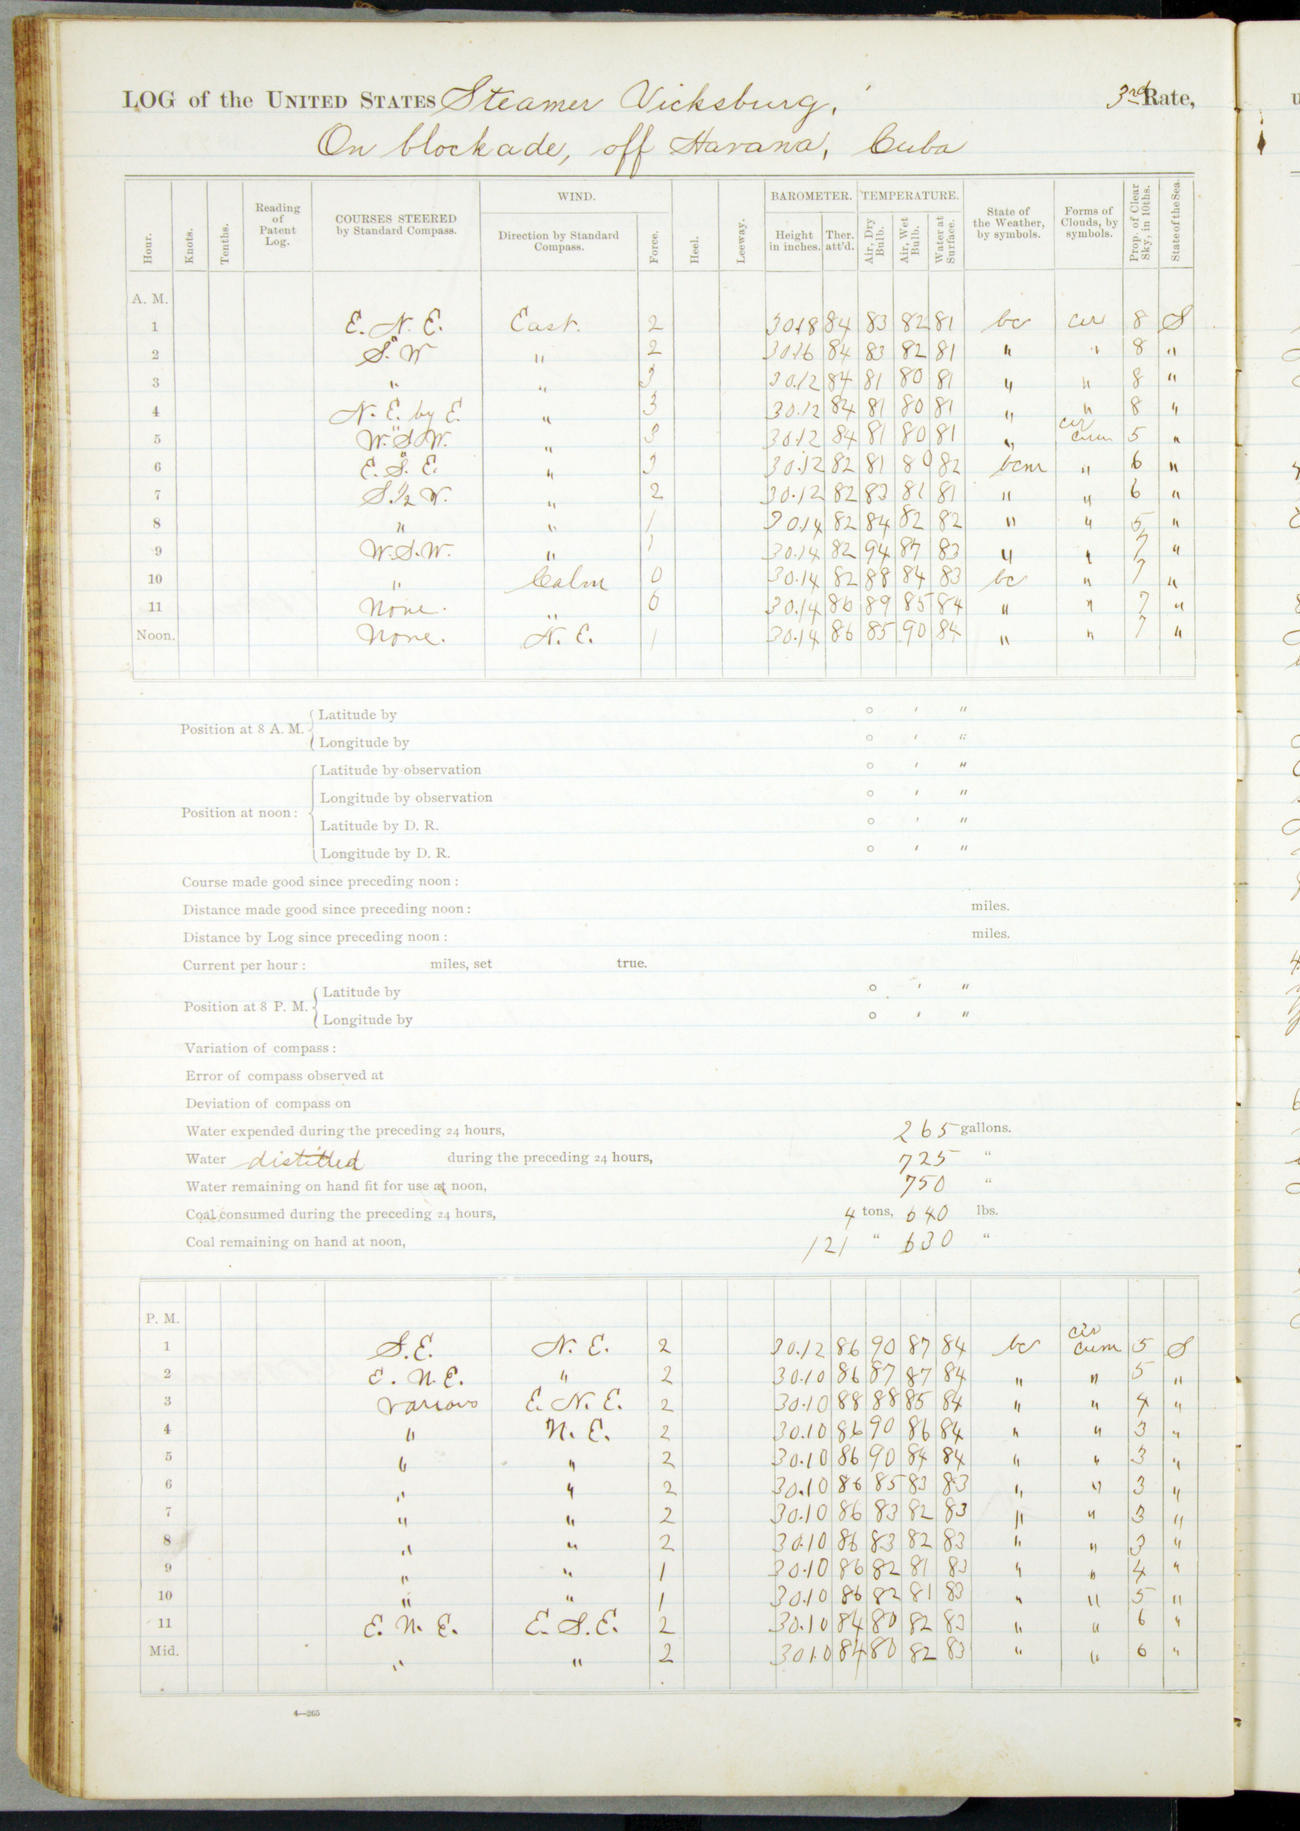 LOG of the UNITED STATES Steamer Vicksburg, 3rd Rate,
On blockade, off Havana, Cuba
Hour. Knots. Tenths. Reading of Patent Log. COURSES STEERED by Standard Compass. WIND. Direction by Standard Compass. Force. Heel. Leeway. BAROMETER. Height in inches. Ther. att'd. TEMPERATURE. Air, Dry Bulb. Air, Wet Bulb. Water at Surface. State of the Weather, by symbols. Forms of Clouds, by symbols. Prop. of Clear Sky, in 10ths. State of the Sea.
A. M.
1 E. N. E. East. 2 30.18 84 83 82 81 bc cir 8 S
2 S. W " 2 30.16 84 83 82 81 " " 8 "
3 " " 3 30.12 84 81 80 81 " " 8 "
4 N. E. by E. " 3 30.12 84 81 80 81 " " 8 "
5 W. S. W. " 3 30.12 84 81 80 81 " cir cum 5 "
6 E. S. E. " 3 30.12 82 81 80 82 bcm " 6 "
7 S. 1/2 W. " 2 30.12 82 83 81 81 " " 6 "
8 " " 1 30.14 82 84 82 82 " " 5 "
9 W. S. W. " 1 30.14 82 94 87 83 " " 7 "
10 " Calm 0 30.14 82 88 84 83 bc " 7 "
11 None. " 0 30.14 86 89 85 84 " " 7 "
Noon. None. N. E. 1 30.14 86 85 90 84 " " 7 "
Position at 8 A. M. Latitude by ° ' "
Longitude by ° ' "
Position at noon: Latitude by observation ° ' "
Longitude by observation ° ' "
Latitude by D. R. ° ' "
Longitude by D. R. ° ' "
Course made good since preceding noon:
Distance made good since preceding noon: miles.
Distance by Log since preceding noon: miles.
Current per hour: miles, set true.
Position at 8 P. M. Latitude by ° ' "
Longitude by ° ' "
Variation of compass:
Error of compass observed at
Deviation of compass on
Water expended during the preceding 24 hours, 265 gallons.
Water distilled during the preceding 24 hours, 725 "
Water remaining on hand fit for use at noon, 750 "
Coal consumed during the preceding 24 hours, 4 tons, 640 lbs.
Coal remaining on hand at noon, 121 " 630 "
P. M.
1 S. E. N. E. 2 30.12 86 90 87 84 bc cir cum 5 S
2 E. N. E. " 2 30.10 86 87 87 84 " " 5 "
3 various E. N. E. 2 30.10 88 88 85 84 " " 4 "
4 " N. E. 2 30.10 86 90 86 84 " " 3 "
5 " " 2 30.10 86 90 84 84 " " 3 "
6 " " 2 30.10 86 85 83 83 " " 3 "
7 " " 2 30.10 86 83 82 83 " " 3 "
8 " " 2 30.10 86 83 82 83 " " 3 "
9 " " 1 30.10 86 82 81 83 " " 4 "
10 " " 1 30.10 86 82 81 83 " " 5 "
11 E. N. E. E. S. E. 2 30.10 84 80 82 83 " " 6 "
Mid. " " 2 30.10 84 80 82 83 " " 6 "
4—265